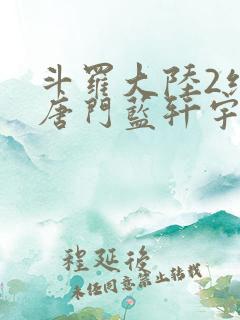 斗羅大陸2絕
唐門藍軒宇
程延後
未经同意禁止转载